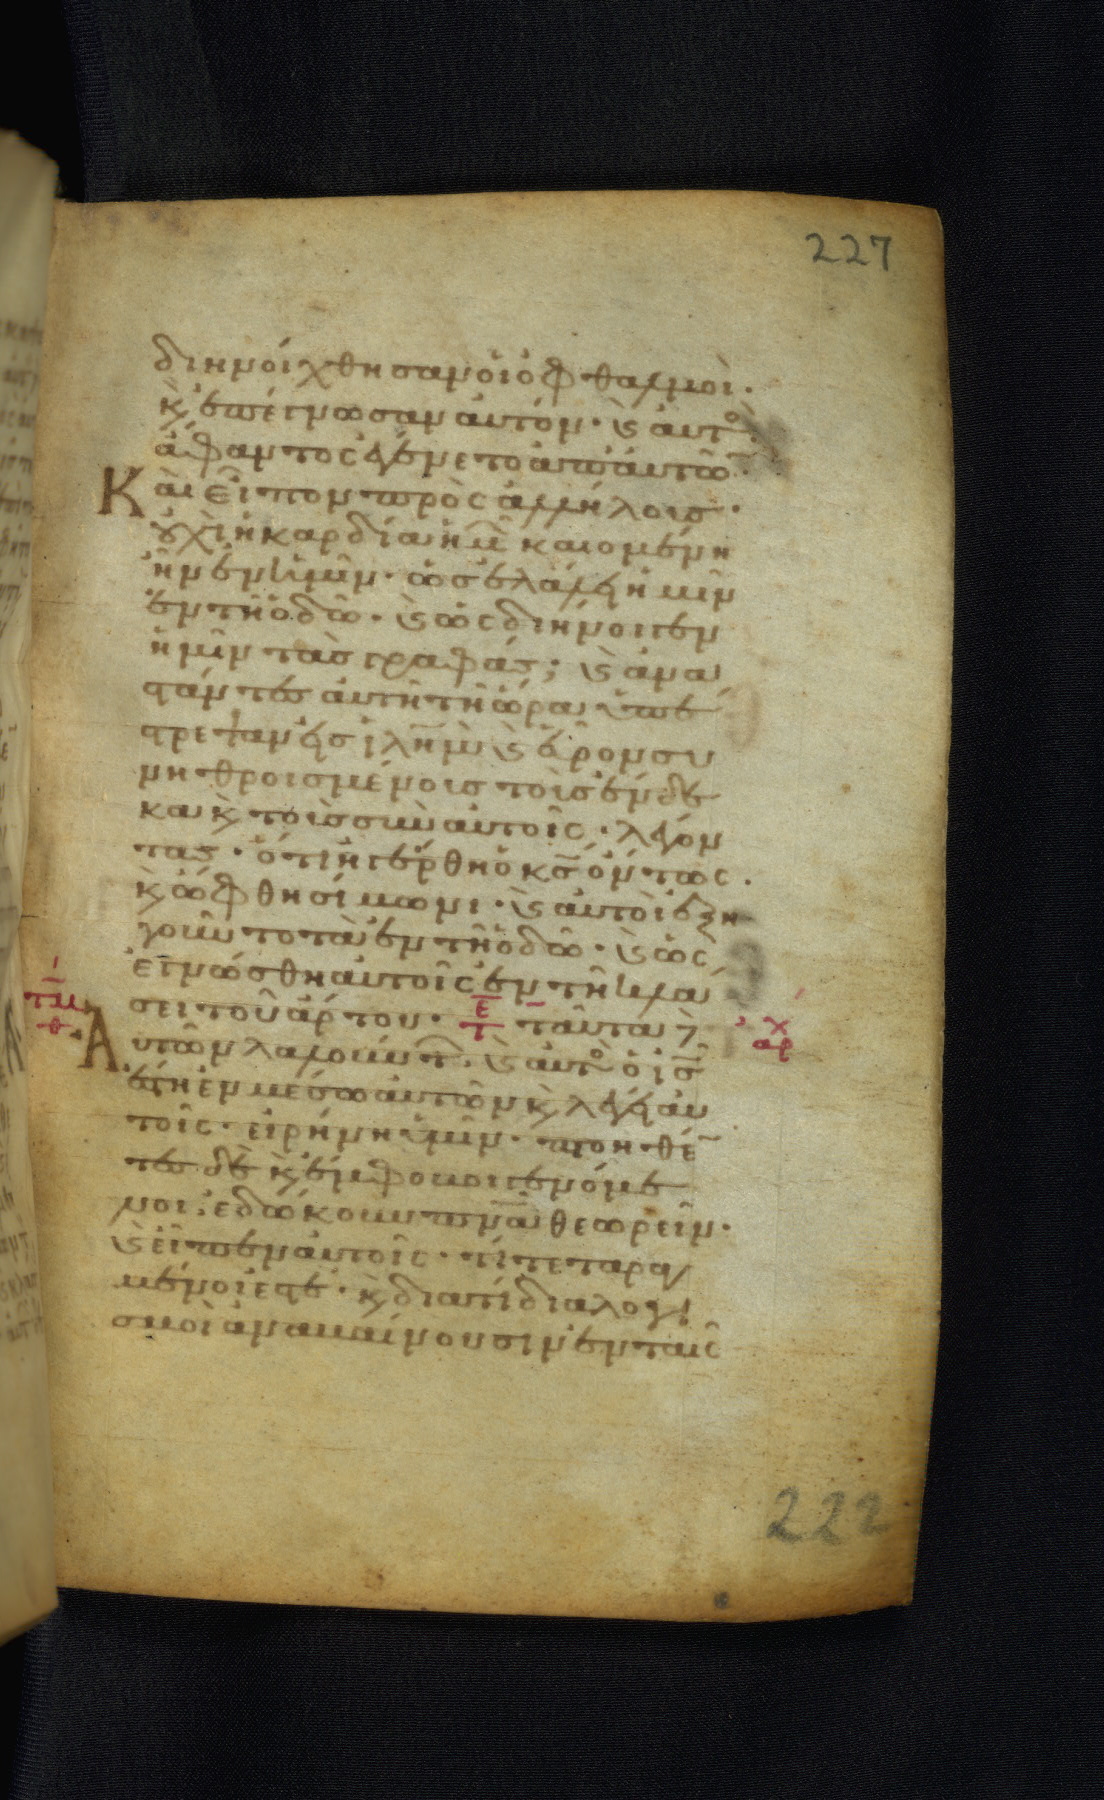 227
διηνοίχθησαν οἱ ὀφθαλμοὶ·
κ̀ ἐπέγνωσαν αὐτόν· κ̀ αὐτὸ
ἄφαντος ἐγένετο ἀπ' αὐτῶ·
Καὶ εἶπον πρὸς ἀλλήλους·
οὐχὶ ἡ καρδία ἡμ̅ καιομένη
ἦν ἐν ἡμῖν· ὡς ἐλάλει ἡμῖν
ἐν τῆ ὁδῶ· κ̀ ὡς διήνοιγεν
ἡμῖν τὰς γραφάς; κ̀ ἀνα
στάντες αὐτῆ τῆ ὥρα ὑπέ
στρεψαν εἰς ιλη̅μ κ̀ εὗρον συ
νηθροισμένους τοὺς ἕνδε
κα κ̀ τοὺς σὺν αὐτοῖς· λέγον
τας· ὅτι ἠγέρθη ὁ κς̅ ὄντως·
κ̀ ὤφθη σίμωνι· κ̀ αὐτοὶ ἐξη
γοῦντο τὰ ἐν τῆ ὁδῶ· κ̀ ὡς
ἐγνώσθη αὐτοῖς ἐν τῆ κλά
σει τοῦ ἄρτου· ταῦτα δ
Αὐτῶν λαλούντ· κ̀ αὐτὸ ὁ ις̅
ἔστη ἐν μέσω αὐτῶν κ̀ λέγει αὐ
τοῖς· εἰρήνη ὑμῖν· πτοηθέ̅
τες δὲ κ̀ ἔμφοβοι γενόμε
νοι· ἐδόκουν πνα̅ θεωρεῖν·
κ̀ εἶπεν αὐτοῖς· τί τεταραγ
μένοι ἐστέ· κ̀ διατί διαλογι
σμοὶ ἀναβαίνουσιν ἐν ταῖς
222